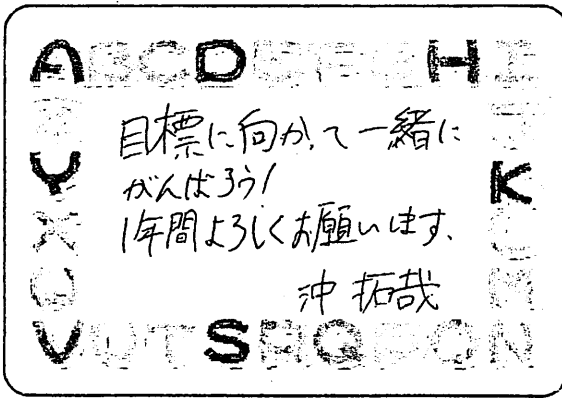 ABCDEFGHI
目標に向かって一緒に
がんばろう!
1年間よろしくお願いします、
沖 拓哉
Y
X
K
M
VUTSRQPON